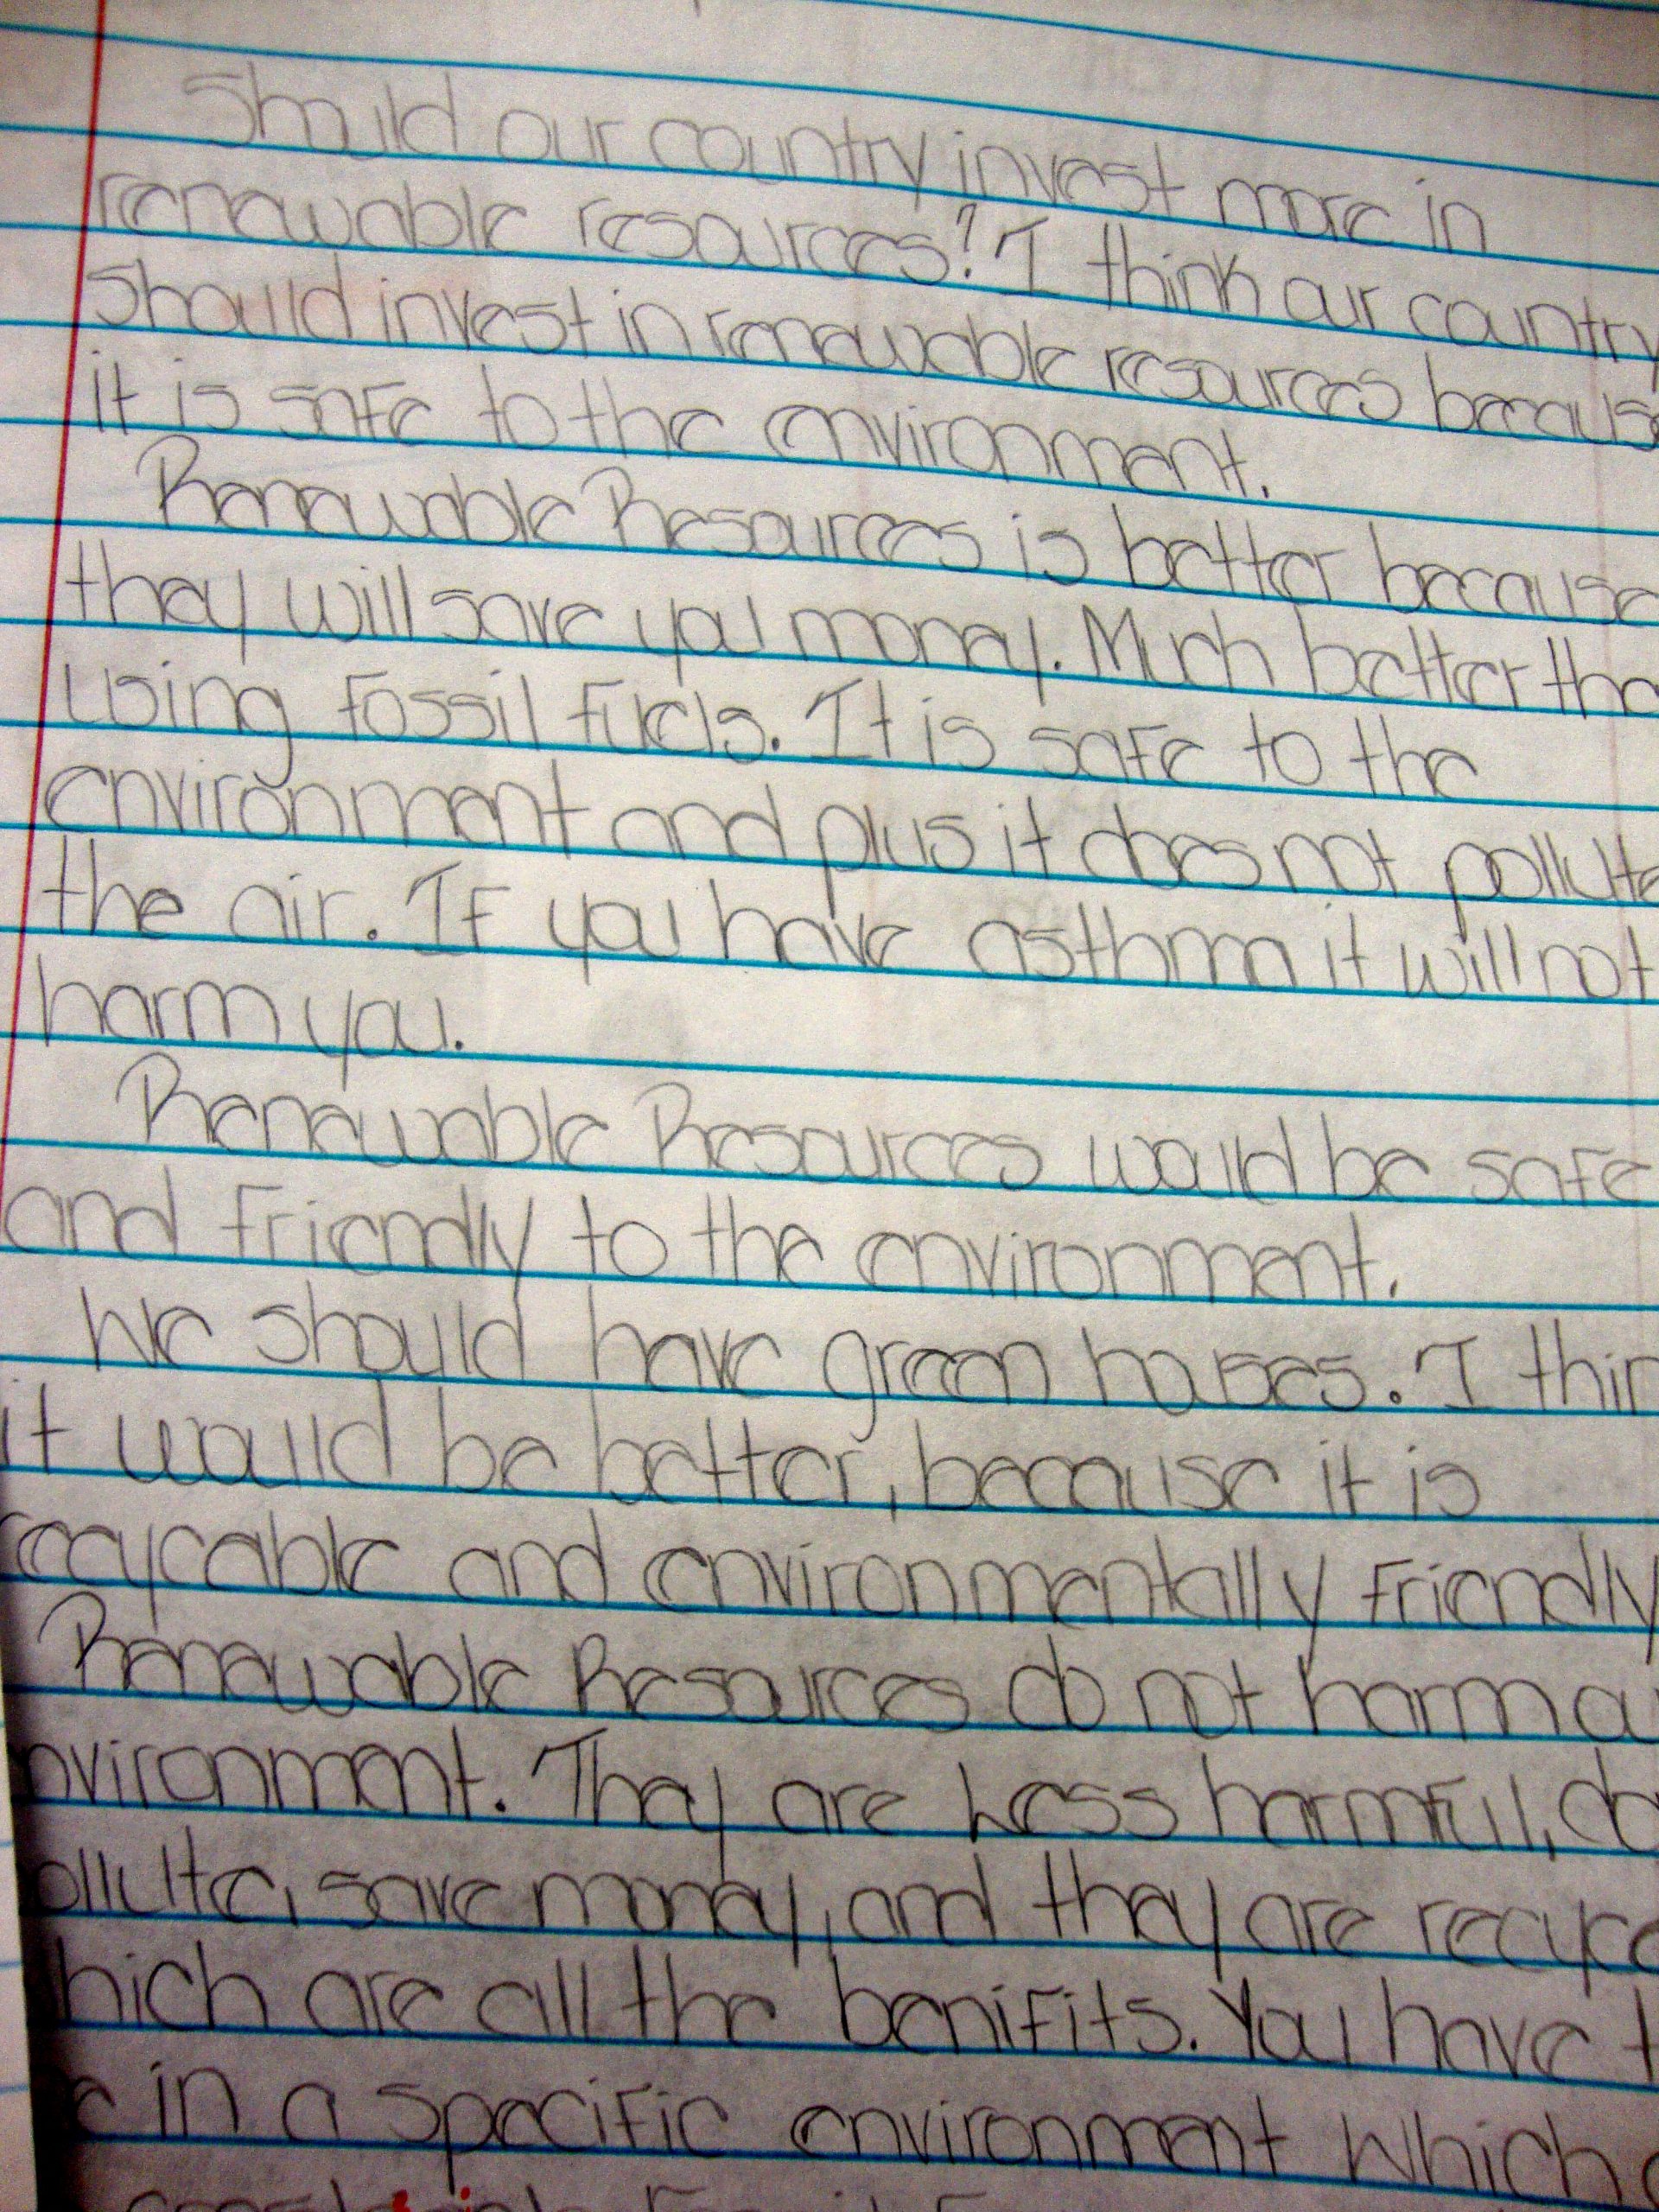 Should our country invest more in
renewable resources? I think our country
should invest in renewable resources becaus
it is safe to the environment.
Renewable Resources is better because
they will save you money. Much better tha
using fossil fuels. It is safe to the
environment and plus it does not pollute
the air. If you have asthma it will not
harm you.
Renewable Resources would be safe
and friendly to the environment.
We should have green houses. I thin
it would be better, because it is
recycable and environmentally friendly
Renewable Resources do not harm ou
nvironment. They are Less harmful, do
ollute, save money, and they are recyca
hich are all the benifits. You have t
e in a specific environment which